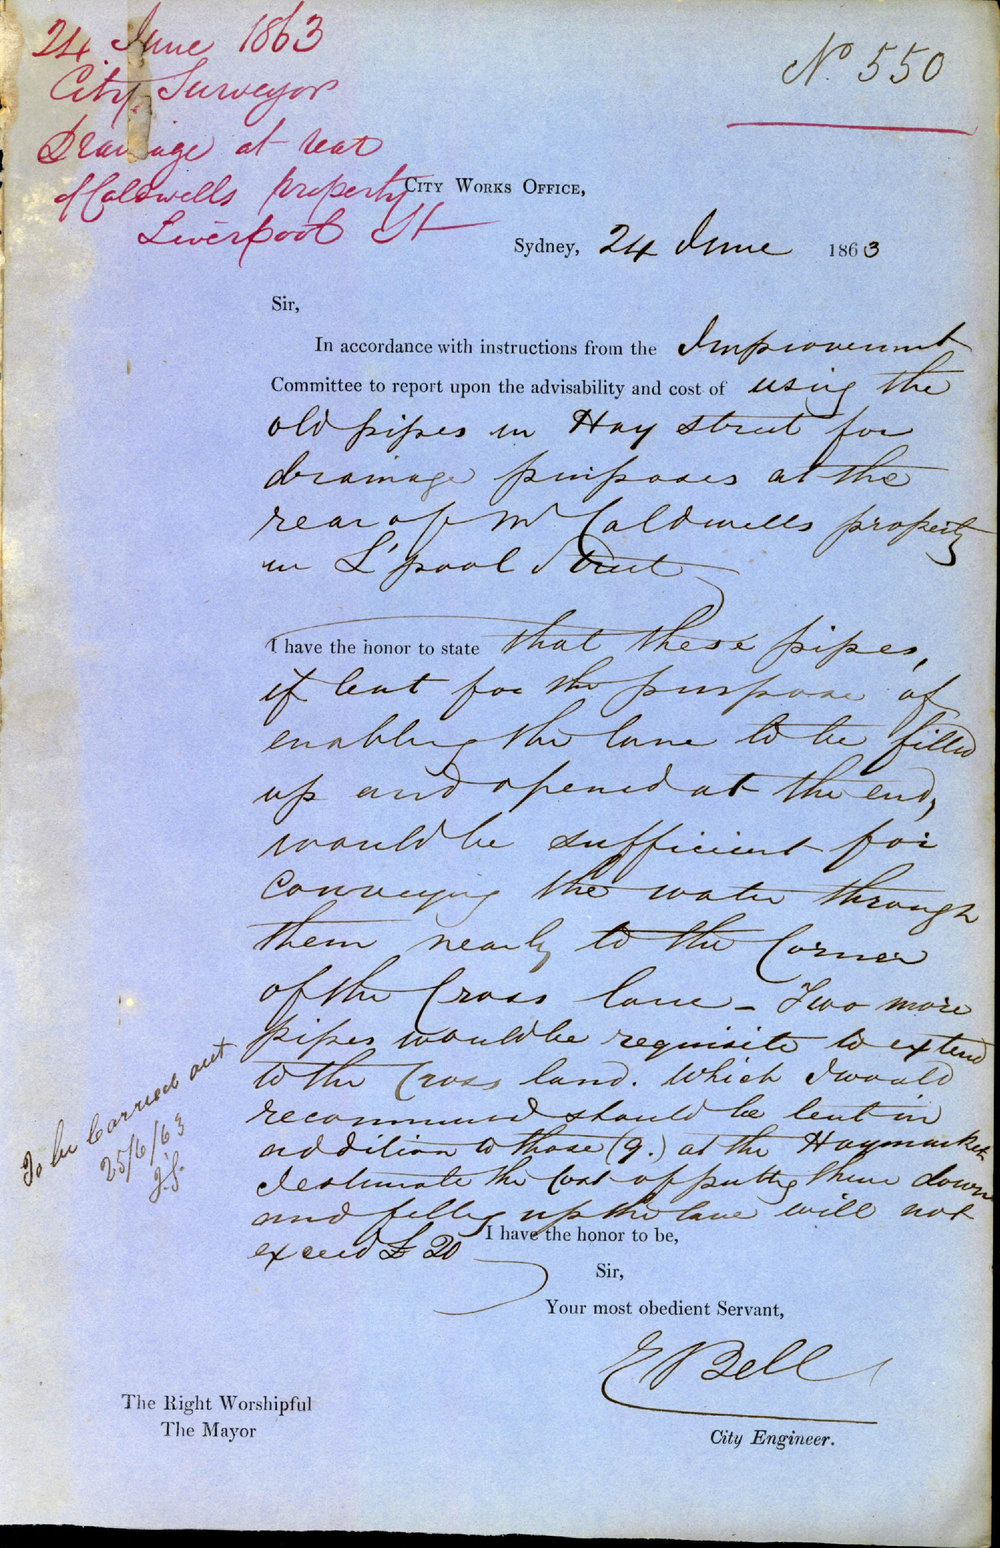 24 June 1863
City Surveyor
Drainage at rear
of Caldwells property
Liverpool St
No 550
City Works Office,
Sydney, 24 June 1863
Sir,
In accordance with instructions from the Improvement
Committee to report upon the advisability and cost of using the
old pipes in Hay street for
drainage purposes at the
rear of Mr Caldwells property
in L'pool Street
I have the honor to state that these pipes,
if lent for the purpose of
enabling the lane to be filled
up and opened at the end,
would be sufficient for
conveying the water through
them nearly to the Corner
of the Cross lane - Two more
pipes would be requisite to extend
to the Cross land. Which I would
recommend should be lent in
addition to those (9.) at the Haymarket
I estimate the Cost of putting them down
and filling up the lane will not
exceed £ 20
I have the honor to be,
Sir,
Your most obedient Servant,
E Bell
City Engineer.
The Right Worshipful
The Mayor
To be Carried out
25/6/63